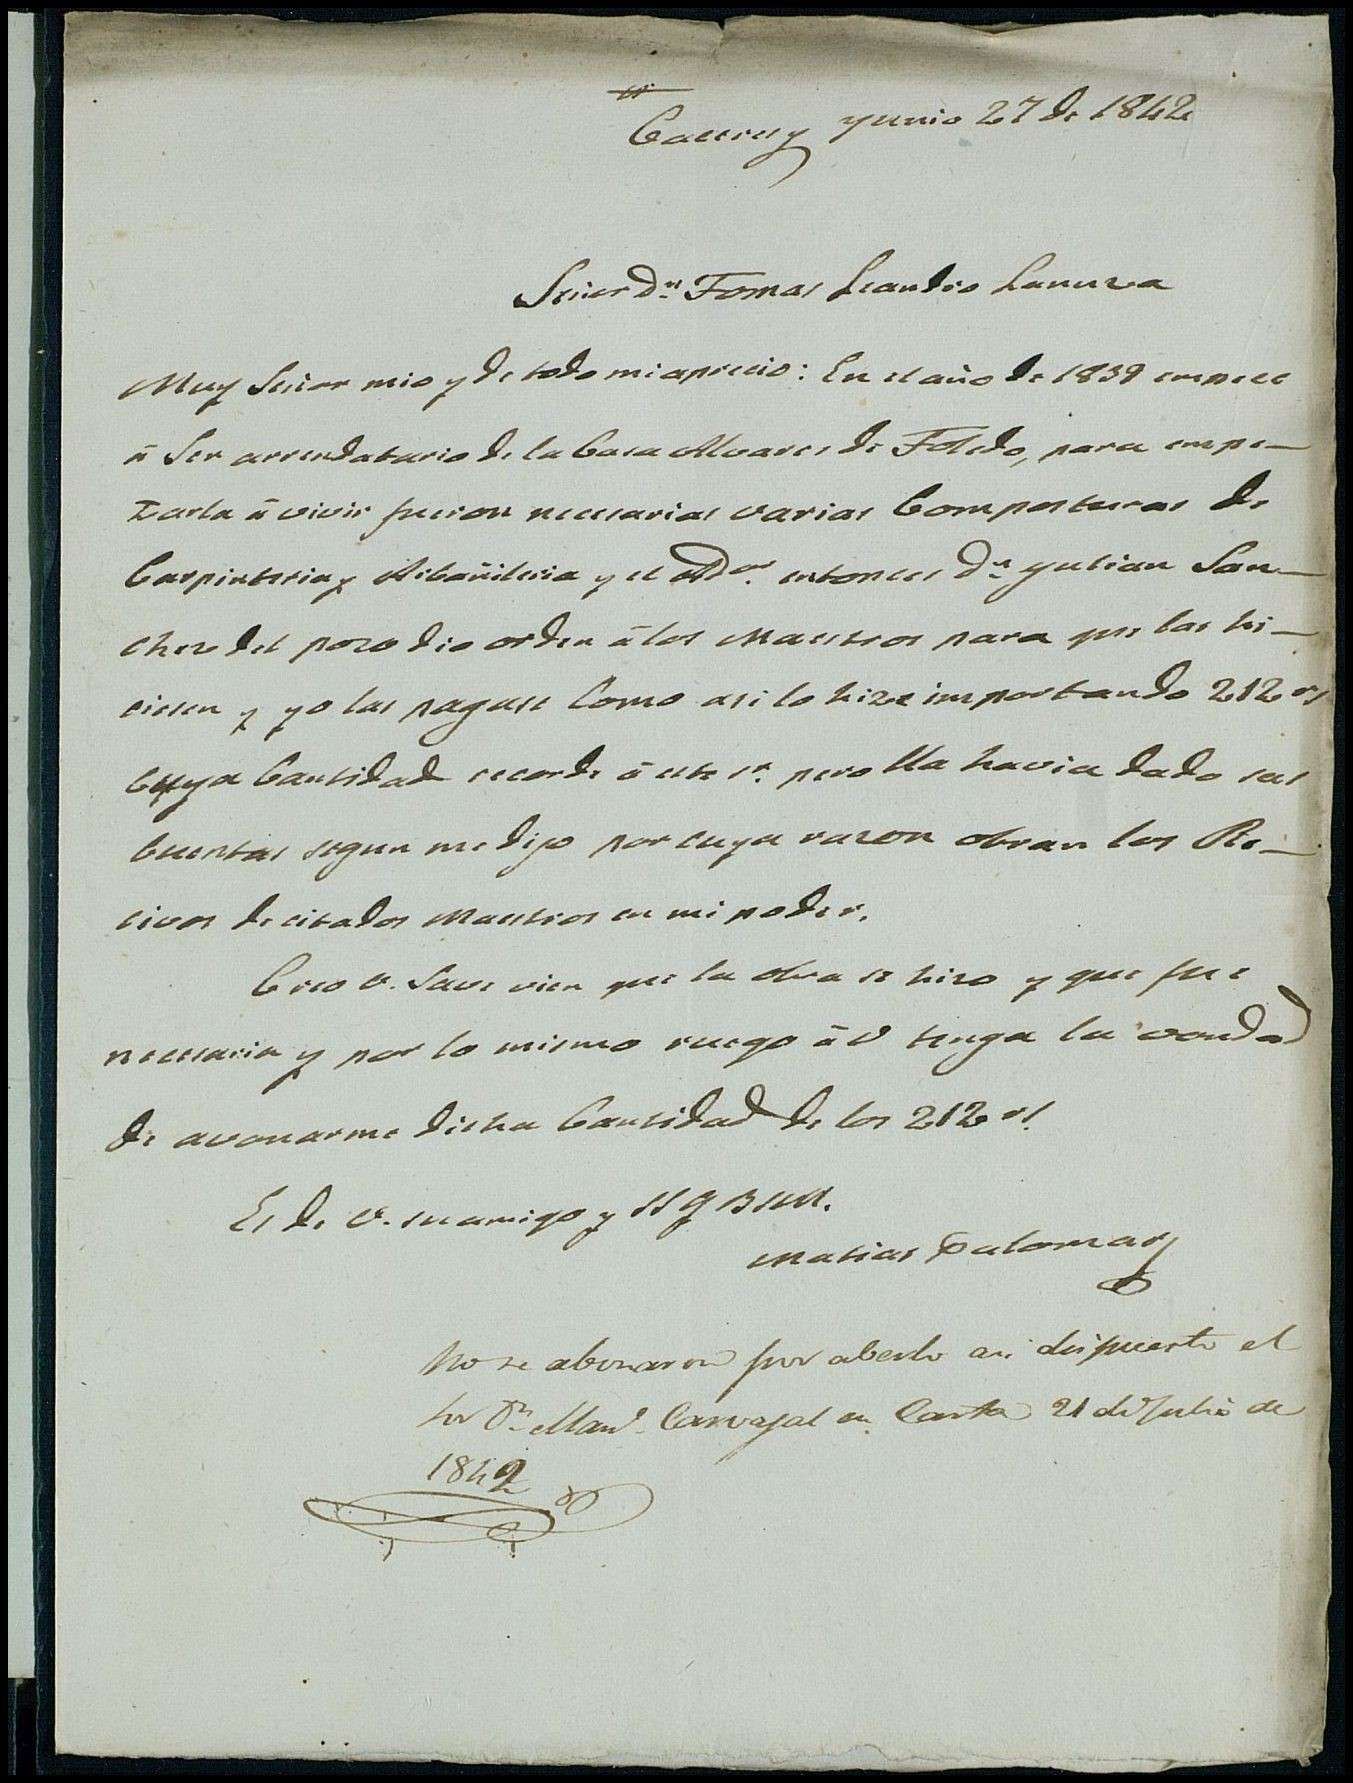 Caceres y yunio 27 de 1842
Señor Dn. Tomas Leandro Lanuza
Muy Señor mio y de todo mi aprecio: En el año de 1839 empece
á Ser arrendatario de la Casa Alvares de Toledo, para empe-
zarla á vivir fueron necesarias varias Composturas de
Carpinteria y Albañileria y el Ador. entonces Dn. yulian San-
chez del pozo dio orden á los Maestros para que las hi-
ciesen y yo las pagase Como asi lo hize importando 212 rs
Cuya Cantidad recorde á este sr. pero lla havia dado sus
Cuentas segun me dijo por cuya razon obran los Re-
civos de citados Maestros en mi poder.
Creo V. Save vien que la obra se hizo y que fue
necesaria y por lo mismo ruego á V tenga la vondad
de avonarme dicha Cantidad de los 212 rs.
Es de V. su amigo y SSQBSM.
Matias Palomar
No se abonaron por aberlo asi dispuesto el
Sor Dn. Manl. Carvajal en Carta 21 de Julio de
1842